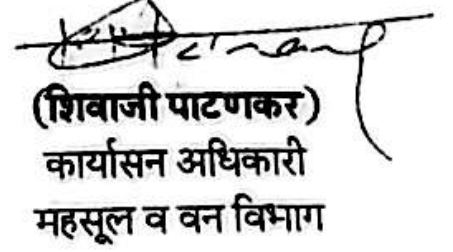 (शिवाजी पाटणकर)
कार्यासन अधिकारी
महसूल व वन विभाग